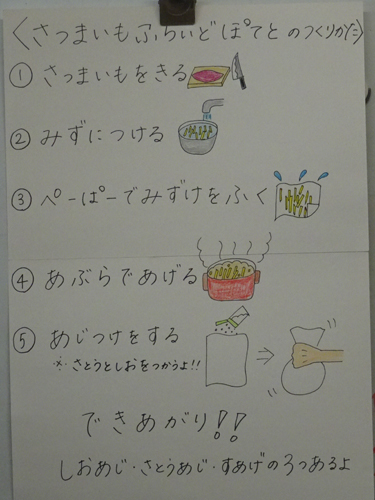 〈さつまいもふらいどぽてとのつくりかた〉
① さつまいもをきる
② みずにつける
③ ぺーぱーでみずけをふく
④ あぶらであげる
⑤ あじつけをする
※さとうとしおをつかうよ!!
できあがり!!
しおあじ・さとうあじ・すあげの3つあるよ